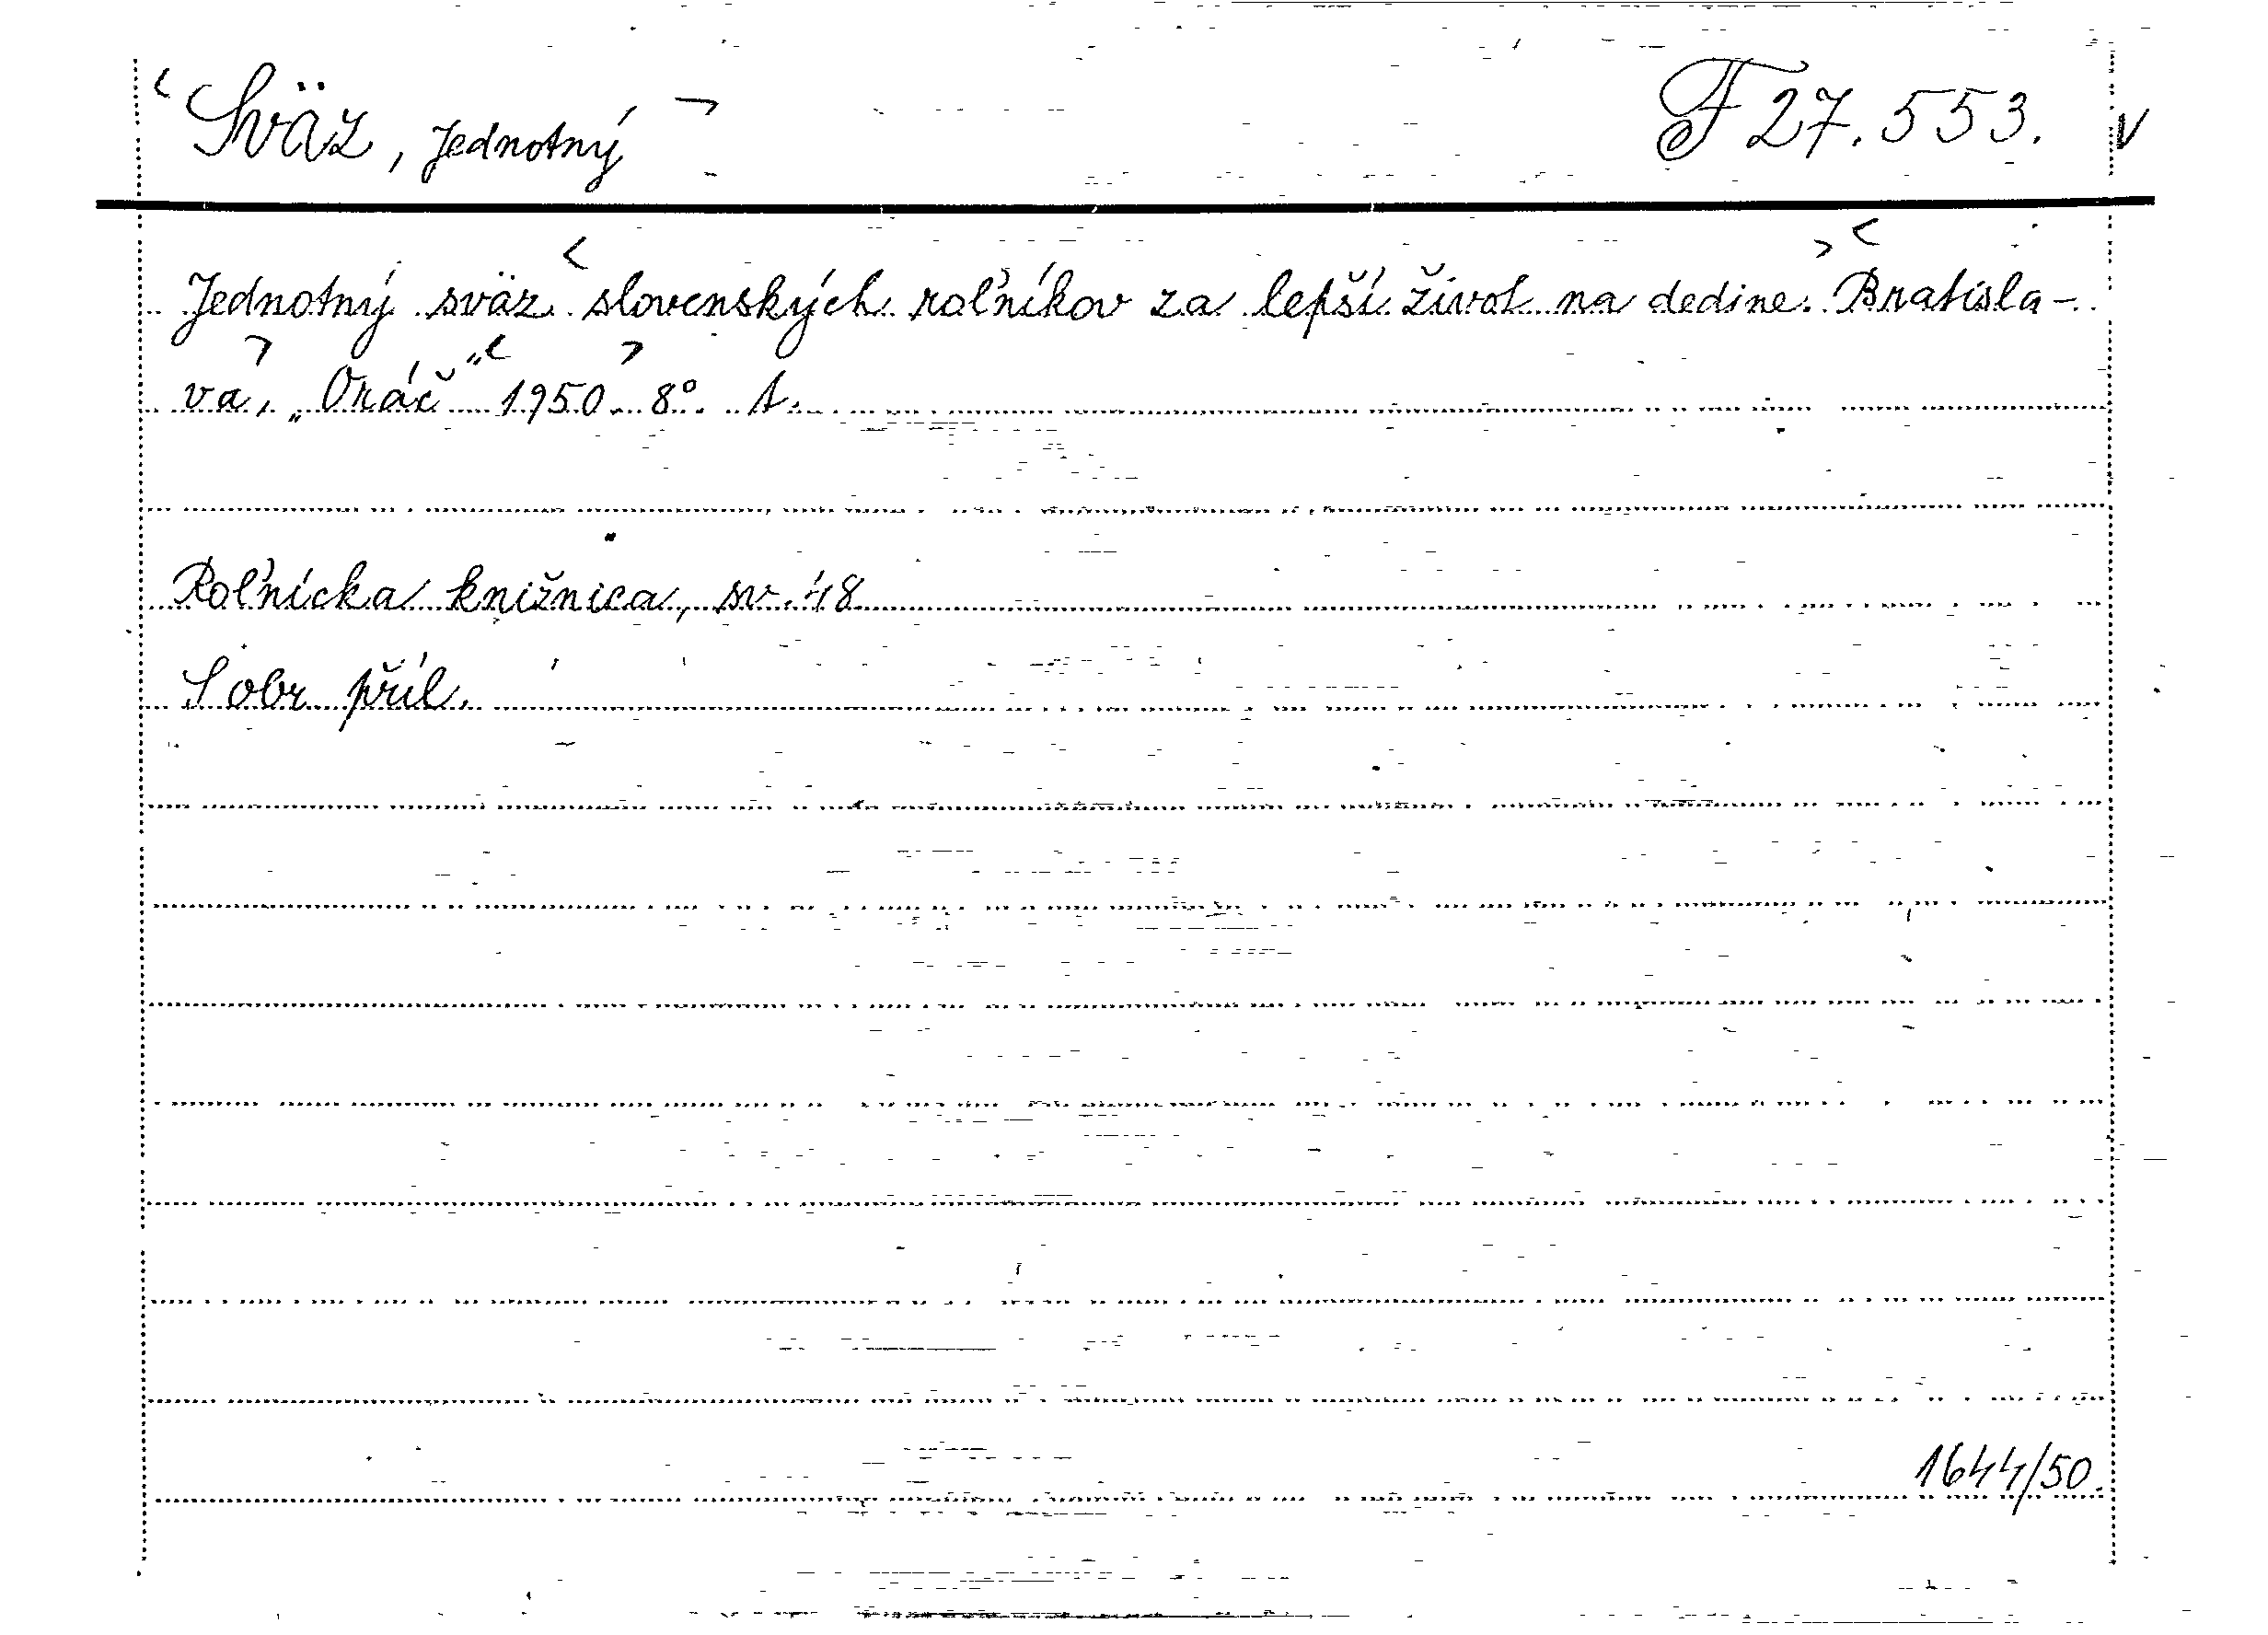 Sväz, Jednotný F 27.553. v
Jednotný sväz slovenských roľníkov za lepší život na dedine. Bratisla-
va, „Oráč“ 1950. 8°. t.
Roľnícka knižnica, sv. 48
S obr příl.
1644/50.